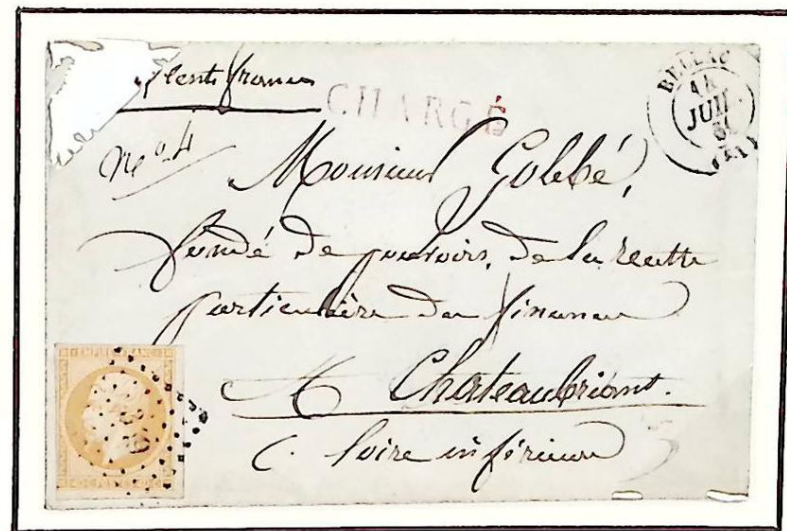 Cent francs
CHARGÉ
BELLAC
14
JUIL.
N° 4
Monsieur Gobbé,
fondé de pouvoirs, de la recette
particulière des finances
à Chateaubriant.
Loire inférieure
EMPIRE FRANC